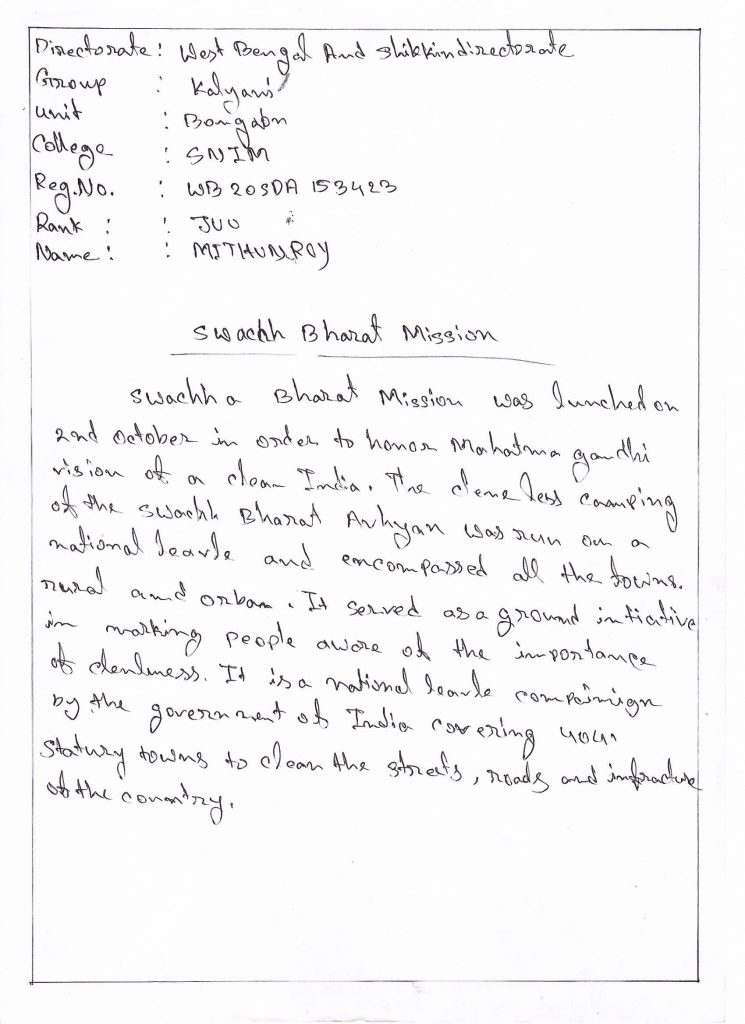 Directorate: West Bengal And Shikkindirectorate
Group : Kalyani
Unit : Bongabn
College : SNIM
Reg.No. : WB20SDA153423
Rank : : JUO
Name : : MITHUN ROY
Swachh Bharat Mission
Swachha Bharat Mission was lunched on
2nd october in order to honor Mahatma gandhi
vision of a clean India. The cleneless camping
of the Swachh Bharat Avhyan was run on a
national leavle and encompassed all the towns.
rural and orban. It served as a ground intiative
in making people aware of the importance
of clenliness. It is a national leavle
by the government of India covering 4041
Statury towns to clean the streets, roads and
of the country.